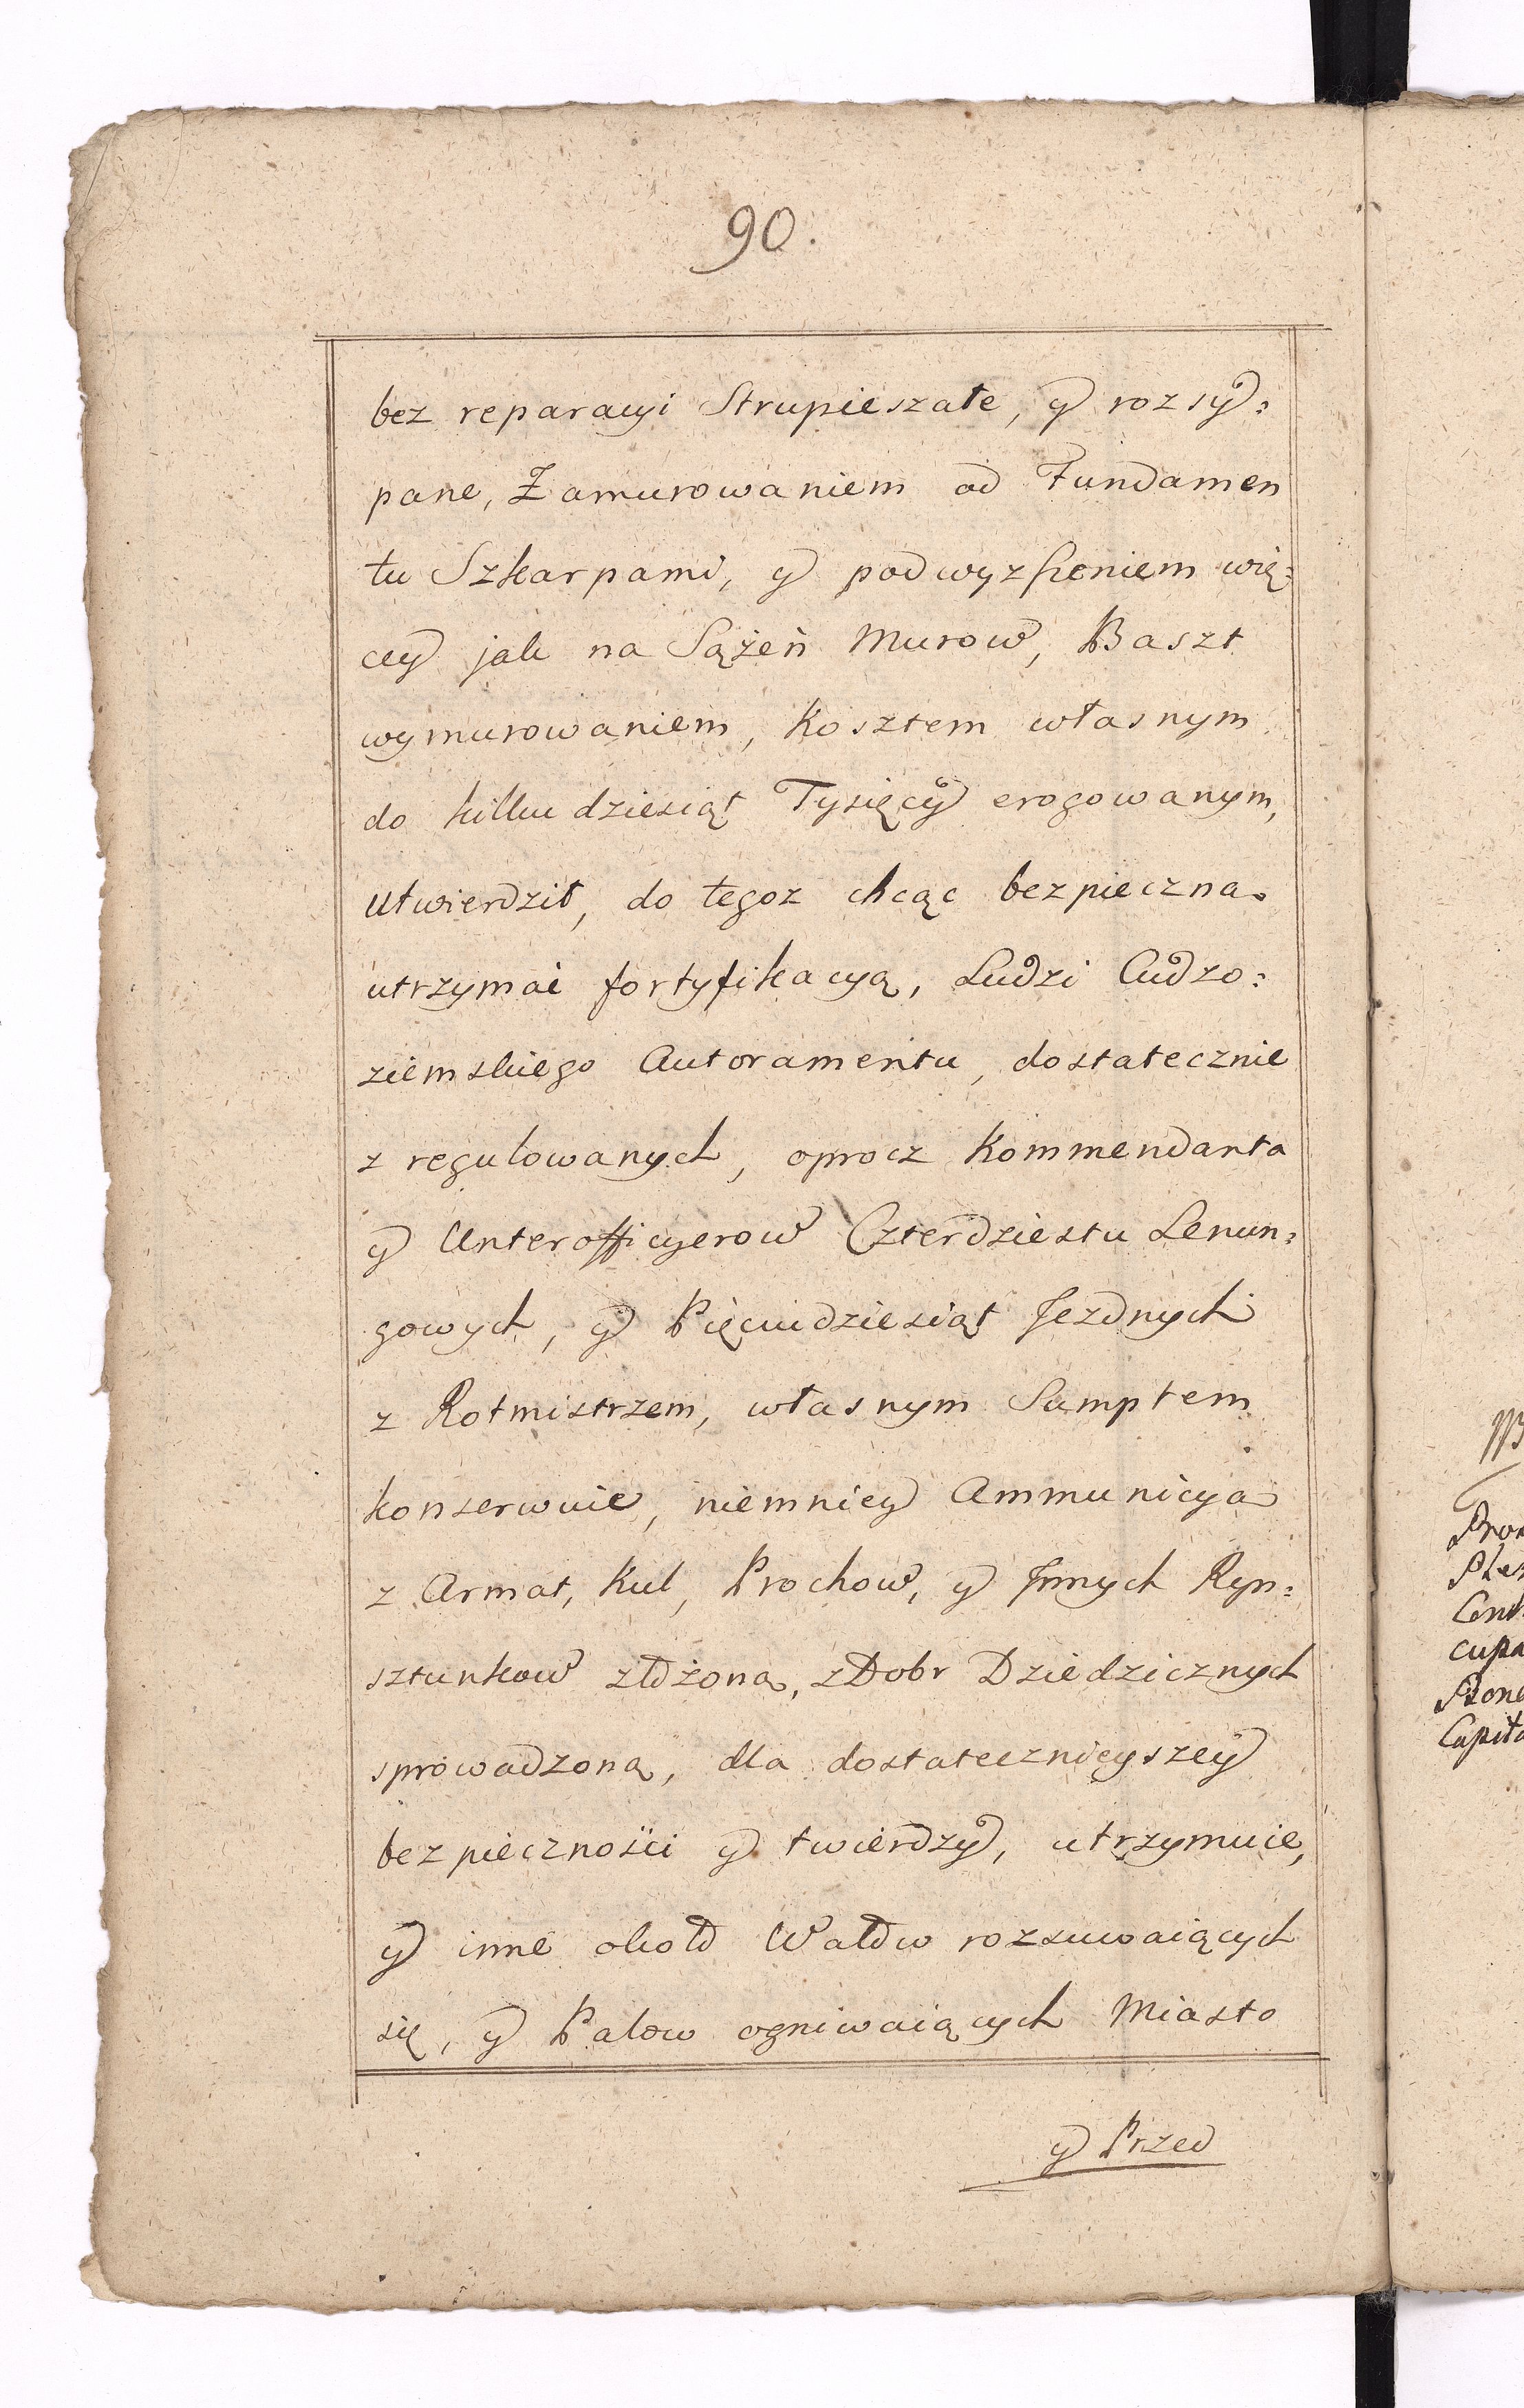 90.
bez reparacyi Strupieszałe, y rozsy:
pane, Zamurowaniem od Fundamen
tu Szkarpami, y podwyzszeniem wię:
cey jak na Sążeń Murow, Baszt
wymurowaniem, Kosztem własnym
do kilku dziesiąt Tysięcy erogowanym,
utwierdził, do tegoz chcąc bezpieczną
utrzymać fortyfikacyą, Ludzi Cudzo:
ziemskiego Autoramentu, dostatecznie
z regulowanych, oprocz Kommendanta
y Unterofficyerow Czterdziestu Lenun:
gowych, y Pięciudziesiąt Jezdnych
z Rotmistrzem, własnym Sumptem
konserwuie, niemniey Ammunicyą
z Armat, Kul, Prochow, y Innych Ryn:
sztunkow złożoną, z Dobr Dziedzicznych
sprowadzoną, dla dostatecznieyszey
bezpieczności y twierdzy, utrzymuie,
y inne około Wałow rozsuwaiących
się, y Palow ogniwaiących Miasto
y Przed